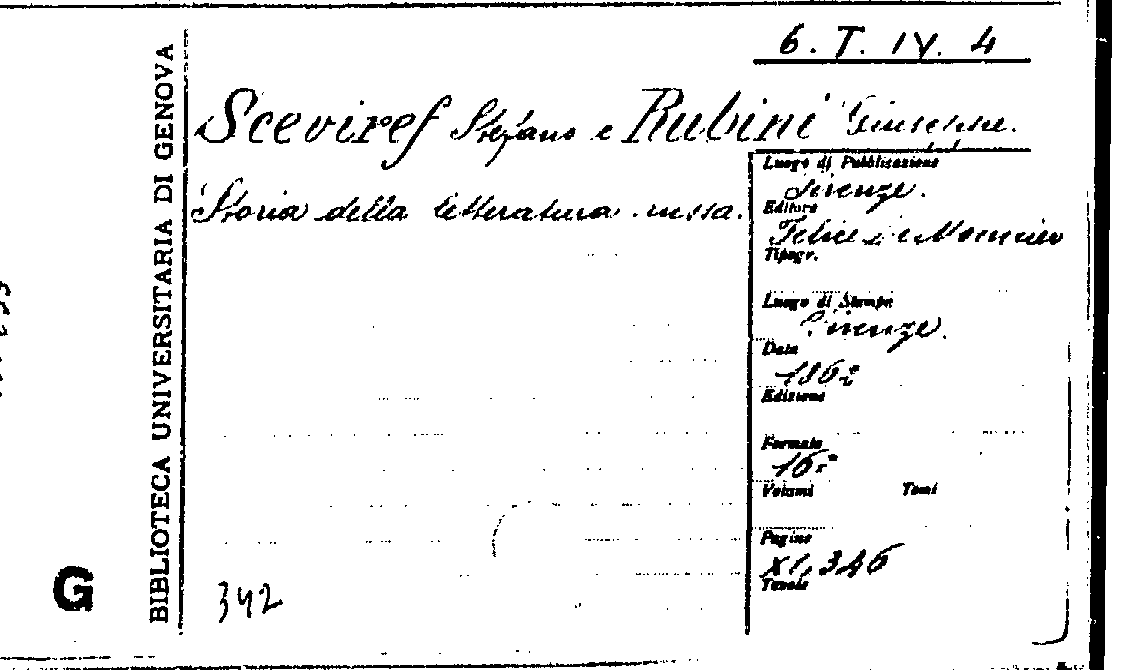 6. T. IV. 4
Sceviref Stefano e Rubini Giuseppe.
Storia della letteratura russa.
Luogo di Pubblicazione
Firenze.
Editore
Felice Le Monnier
Tipogr.
Luogo di Stampa
Firenze.
Data
1862
Edizione
Formato
16°
Volumi Tomi
Pagine
XI, 346
Tavole
BIBLIOTECA UNIVERSITARIA DI GENOVA
G
342